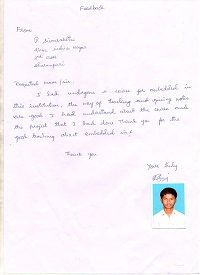 Feedback
From
P. Sivasakthi
Indira nagar
Dharmapuri
Respected mam / sir,
I had undergone a course for embedded in
this institution, the way of teaching and giving notes
are good. I had understand about the course and
the project that I had done thank you for the
good teaching about embedded in c.
Thank you